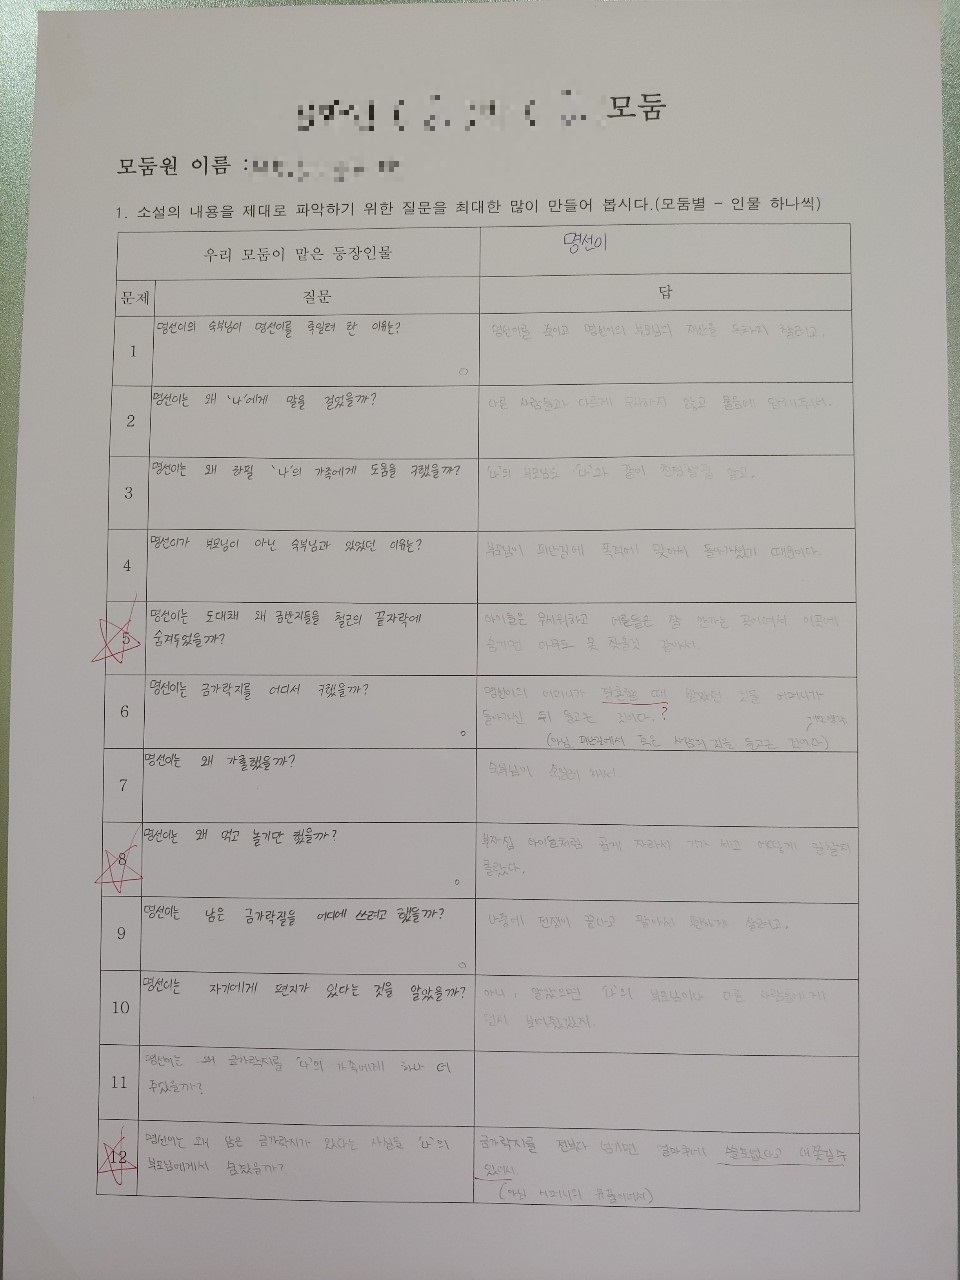 모둠
모둠원 이름 :
1. 소설의 내용을 제대로 파악하기 위한 질문을 최대한 많이 만들어 봅시다.(모둠별 - 인물 하나씩)
우리 모둠이 맡은 등장인물 명선이
문제 질문 답
1 명선이의 숙부님이 명선이를 죽일려 한 이유는?
명선이를 죽이고 명선이의 부모님의 재산을
2 명선이는 왜 '나'에게 말을 걸었을까?
다른 사람들과 다르게 무시하지 않고 물음에
3 명선이는 왜 하필 '나'의 가족에게 도움을 구했을까?
'나'의 부모님도 '나'와 같이
4 명선이가 부모님이 아닌 숙부님과 있었던 이유는?
부모님이 피난길에 폭격에 맞아서 돌아가셨기 때문이다
5 명선이는 도대체 왜 금반지들을 철근의 끝자락에
숨겨두었을까?
아이들은 무서워하고 어른들은 잘 안가는 곳이여서 이곳에
숨기면 아무도 못 찾을것 같아서.
6 명선이는 금가락지를 어디서 구했을까?
명선이의 어머니가 결혼할 때 받았던 것을 어머니가
돌아가신 뒤 들고온 것이다. ?
(아님 피난길에서 죽은 사람의 것을 들고온 것이다)
7 명선이는 왜 가출했을까?
숙부님이
8 명선이는 왜 먹고 놀기만 했을까?
부자집 아이로 곱게 자라서 기가 세고 어떻게 일할지
몰랐다.
9 명선이는 남은 금가락질을 어디에 쓰려고 했을까?
나중에 전쟁이 끝나고 팔아서 편하게 살려고.
10 명선이는 자기에게 편지가 있다는 것을 알았을까?
아니, 알았으면 '나'의 부모님이나 다른 사람들에게
보여줬겠지.
11 명선이는 왜 금가락지를 '나'의 가족에게 하나 더
주었을까?
12 명선이는 왜 남은 금가락지가 있다는 사실을 '나'의
부모님에게서 숨겼을까?
금가락지를 전부다 넘기면 얼마후에 쓸모없다고 내쫓길수
있어서
(아님 어머니의 유품이여서)